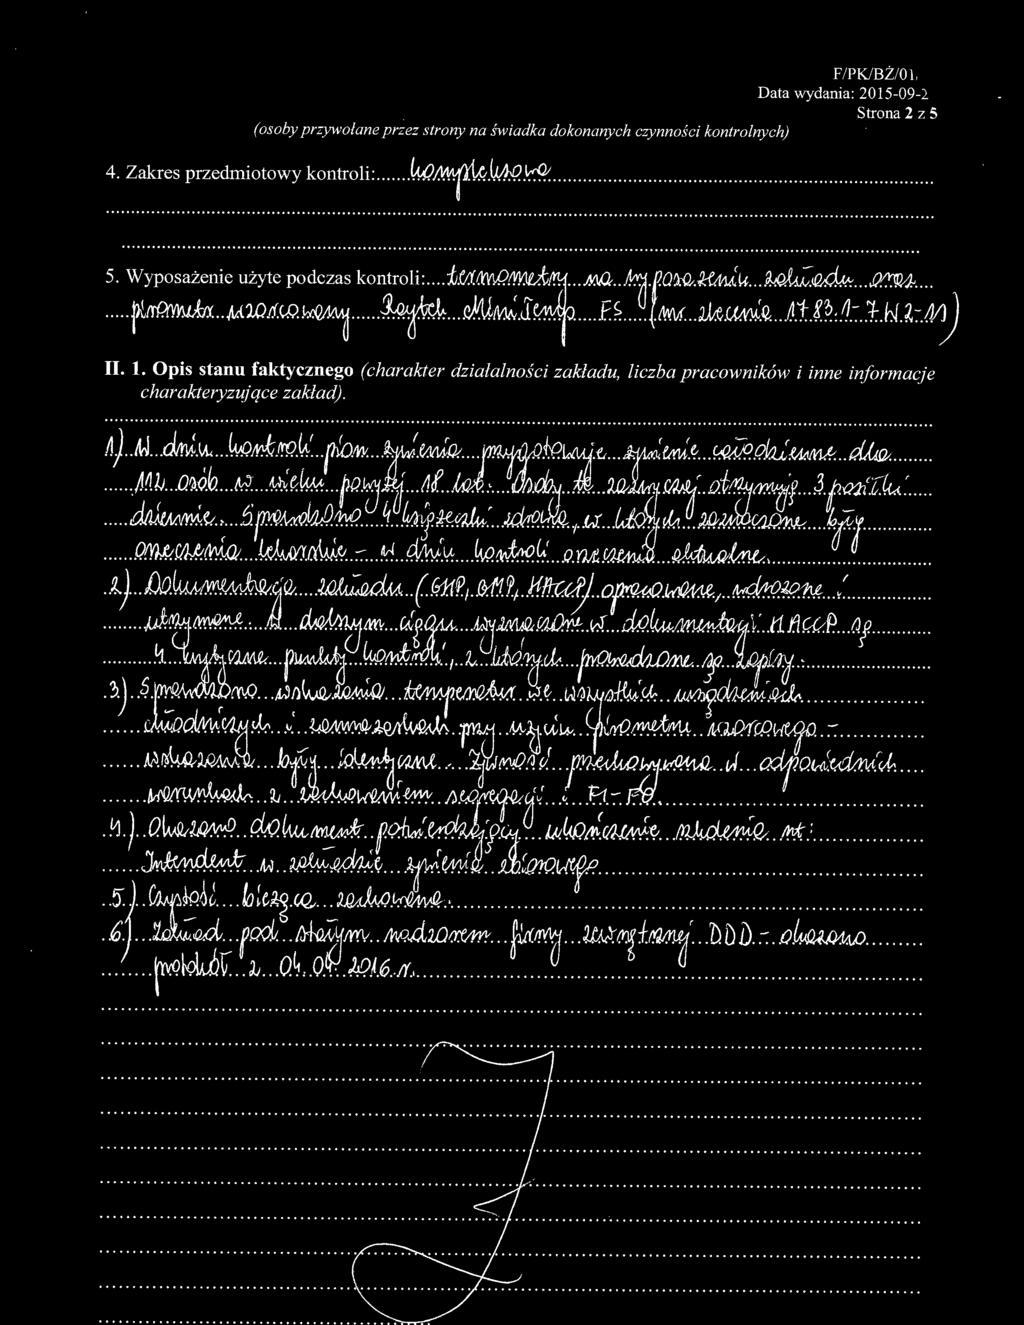 F/PK/BŻ/01
Data wydania: 2015-09-2
Strona 2 z 5
(osoby przywołane przez strony na świadka dokonanych czynności kontrolnych)
4. Zakres przedmiotowy kontroli: kompleksowa
5. Wyposażenie użyte podczas kontroli: termometry na wyposażeniu zakładu oraz
pirometr wzorcowany Raytek MiniTemp FS (nr zlecenia 1783.1-7W2-11)
II. 1. Opis stanu faktycznego (charakter działalności zakładu, liczba pracowników i inne informacje
charakteryzujące zakład).
1) W dniu kontroli pion żywienia przygotowuje żywienie całodzienne dla
112 osób w wieku powyżej 18 lat. Osoby te zazwyczaj otrzymują 3 posiłki
dziennie. Sprawdzono 4 książeczki zdrowia, w których zaznaczone były
orzeczenia lekarskie - w dniu kontroli orzeczenia aktualne.
2) Dokumentacja zakładu (GHP, GMP, HACCP) opracowane, wdrożone i
utrzymane. W dalszym ciągu wyznaczone w dokumentacji HACCP są
4 krytyczne punkty kontroli, z których prowadzone są zapisy.
3) Sprawdzono wskazania temperatur we wszystkich urządzeniach
chłodniczych i zamrażarkach przy użyciu pirometru wzorcowego -
wskazania były identyczne. Żywność przechowywana w odpowiednich
warunkach z zachowaniem segregacji i FI-FO.
4.) Okazano dokument potwierdzający ukończenie szkolenia nt:
Intendent w zakładzie żywienia zbiorowego
5.) Czystość bieżąca zachowana.
6.) Zakład pod stałym nadzorem firmy zewnętrznej DDD - okazano
protokół z 04.04.2016 r.